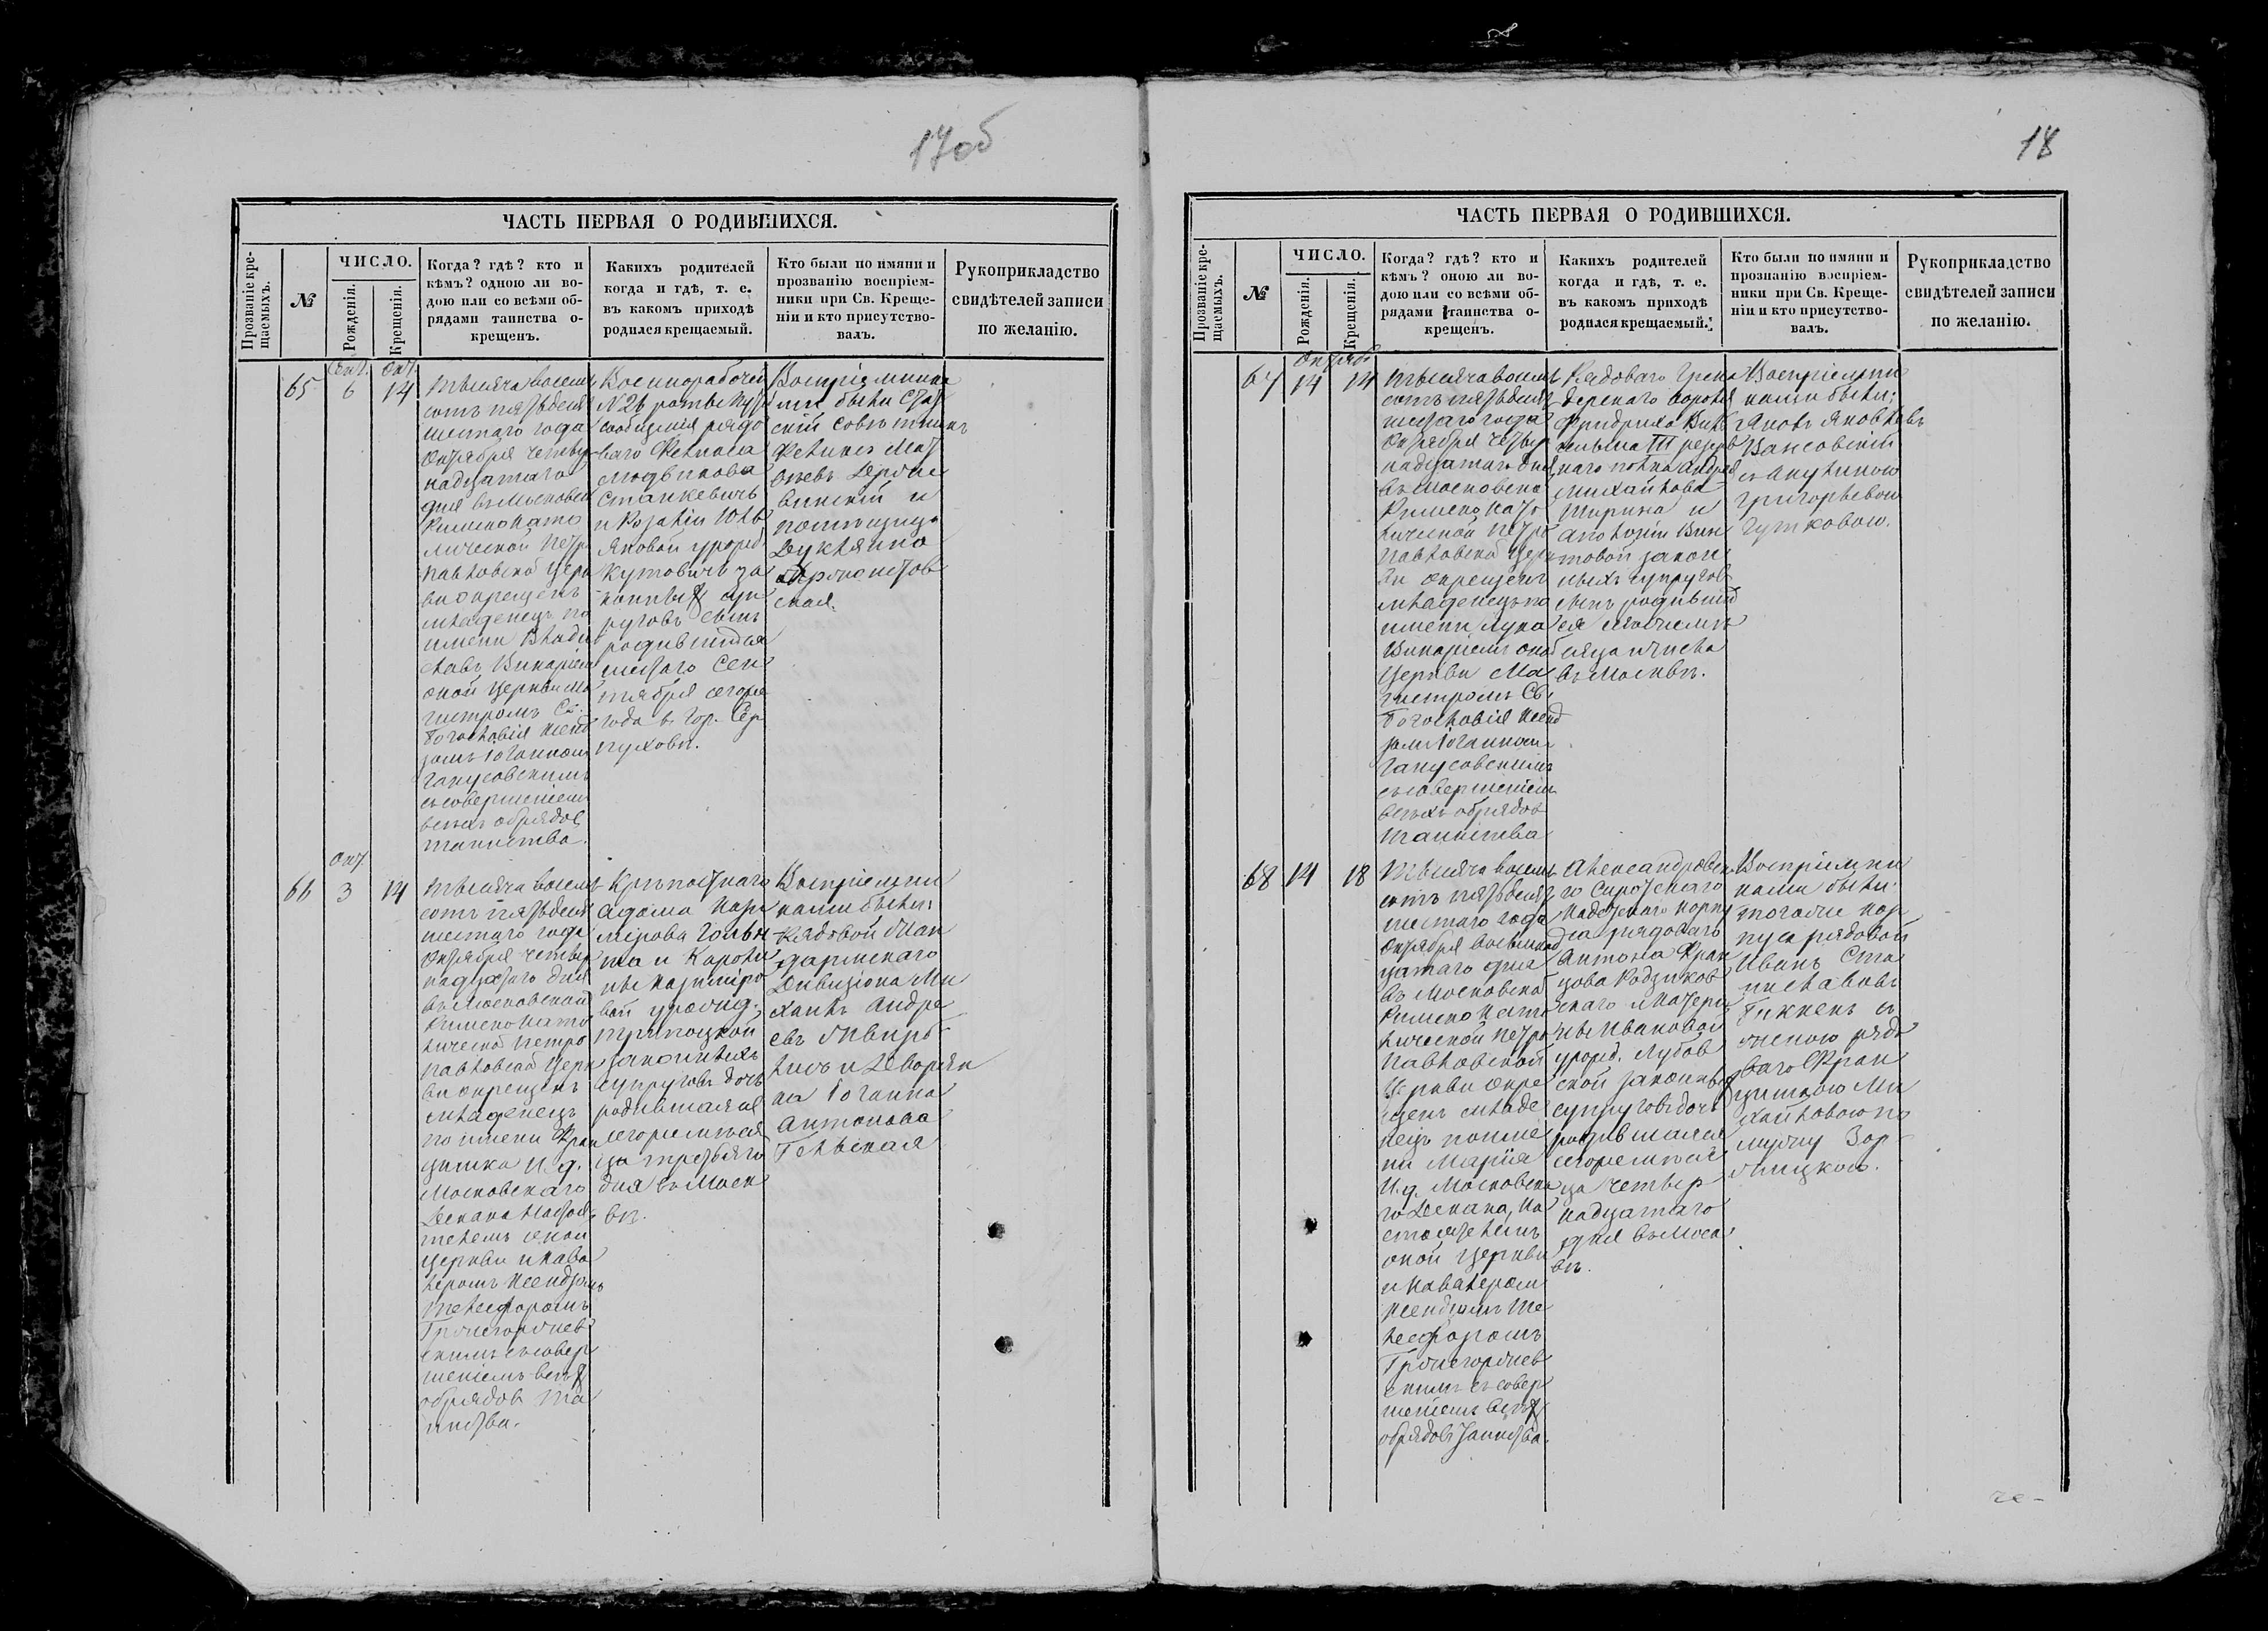 17об
ЧАСТЬ ПЕРВАЯ О РОДИВШИХСЯ.
Прозваніе кре-
щаемыхъ.
№
ЧИСЛО.
Рожденія.
Крещенія.
Когда? гдѣ? кто и
кѣмъ? одною ли во-
дою или со всѣми об-
рядами таинства о-
крещенъ.
Какихъ родителей
когда и гдѣ, т. е.
въ какомъ приходѣ
родился крещаемый.
Кто были по имяни и
прозванію воспріем-
ники при Св. Креще-
ніи и кто присутство-
валъ.
Рукоприкладство
свидѣтелей записи
по желанію.
Сент. Окт.
65 6 14
Тысяча восемь
сотъ пятьдесят
шестаго года
Октября четыр
надцатаго
дня въ Московской
Римско Като
лической Петро
павловской Церк
ви окрещенъ
младенецъ по
имени Влади
славъ, Викаріем
оной Церкви Ма
гистромъ Св.
Богословія Ксенд
зомъ Іоанномъ
Ганусовскимъ
съ совершеніемъ
всехъ обрядовъ
таинства.
Военнорабочей
№ 26 роты Пут
сообщенія рядо
ваго Феликса
Людвикова
Станкевичъ
и Розаліи Юль
яновой урожд.
Кутовичъ за
конныхъ суп
руговъ сынъ
родившійся
шестаго Сен
тября сегоже
года в Гор. Сер
пуховѣ.
Воспріемника
ми были Стат
скій Совѣтникъ
Феликсъ Мат
вѣевъ Держе
винскій и
помѣщица
Лукіянна
скал.
Окт.
66 3 14
Тысяча восемь
сотъ пятьдесят
шестаго года
Октября четыр
надцатаго дня
въ Московской
Римско Като
лической Петро
павловской Церк
ви окрещенъ
младенецъ
по имени Фран
цишка И. д.
Московскаго
Декана Настоя
телемъ оной
Церкви и Кава
леромъ Ксендзомъ
Телесфоромъ
Гржегоржев
скимъ съ совер
шеніемъ всехъ
обрядовъ Та
инства.
Крѣпостнаго
Адама Кази
мірова Гольн
та и Кароли
ны Казиміро
вой урожд.
законныхъ
супруговъ дочь
родившаяся
сегожемѣся
ца третьяго
дня въ Моск
вѣ.
Воспріемни
ками были:
Рядовой Жан
дармскаго
Дивизіона Ми
хаилъ Андре
евъ Жвирб
лисъ и Дворян
ка Іоганна
Антонова
Гельская
18
ЧАСТЬ ПЕРВАЯ О РОДИВШИХСЯ.
Прозваніе кре-
щаемыхъ.
№
ЧИСЛО.
Рожденія.
Крещенія.
Когда? гдѣ? кто и
кѣмъ? оною ли во-
дою или со всѣми об-
рядами таинства о-
крещенъ.
Какихъ родителей
когда и гдѣ, т. е.
въ какомъ приходѣ
родился крещаемый.
Кто были по имяни и
прозванію воспріем-
ники при Св. Креще-
ніи и кто присутство-
валъ.
Рукоприкладство
свидѣтелей записи
по желанію.
Октября
67 14 14
Тысяча восемь
сотъ пятьдесят
шестаго года
Октября четыр
надцатаго дня
въ Московской
Римско Като
лической Петро
павловской Церк
ви окрещенъ
младенецъ по
имени Лука
Викаріемъ оной
Церкви Ма
гистромъ Св.
Богословія Ксенд
зомъ Іоанномъ
Ганусовскимъ
съ совершеніемъ
всехъ обрядовъ
Таинства
Рядоваго Грена
дерскаго Короля
Фридриха Виль
гельма III резерв
наго полка Андрея
Михайлова
Ширина и
Аполоніи Вик
товой закон
ныхъ супругов
сынъ родившій
ся
сяца и числа
въ Москвѣ.
Воспріемни
ками были:
Яковъ Яковлевъ
Вансовскій
съ Акулиною
Григорьевою
Гутковою.
68 14 18
Тысяча восемь
сотъ пятьдесят
шестаго года
Октября восьмнад
цатаго дня
въ Московской
Римско Като
лической Петро
Павловской
Церкви окре
щенъ младе
нецъ по име
ни Марія
И. д. Московска
го Декана, На
стоятелемъ
оной Церкви
и Кавалером
Ксендзомъ Те
лесфоромъ
Гржегоржев
скимъ съ совер
шеніемъ всехъ
обрядовъ Таинства.
Александровска
го Сиротскаго
Кадетскаго корпу
са рядоваго
Антона Фран
цова Родзиков
скаго и Катери
ны Ивановой
урожд. Лубов
ской законныхъ
супруговъ дочь
родившаяся
сегожемѣся
ца четыр
надцатаго
дня въ Моск
вѣ.
Воспріемни
ками были:
тогоже кор
пуса рядовой
Иванъ Ста
ниславовъ
съ
женою рядо
ваго Фран
цишкою Ми
хайловою по
мужу Зар
жицкою.
че-